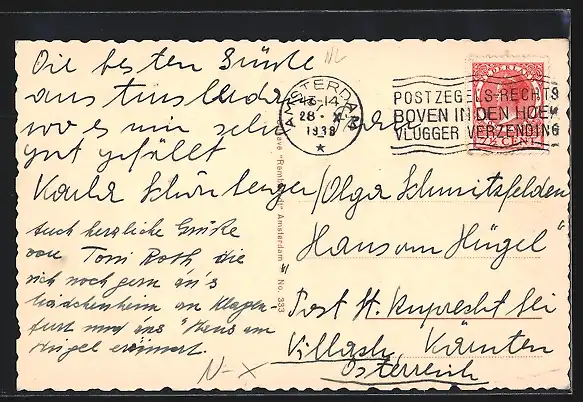 Die besten Grüße
aus Amsterdam
wo es mir sehr
gut gefällt
Karla Schönberger/Olga Schmitzfelden
Auch herzliche Grüße
von Toni Roth die
sich noch gern an's
Mädchenheim in Klagen-
furt und ans "Haus am
Hügel" erinnert.
NL
AMSTERDAM
13-14
28.X
1938
POSTZEGELS RECHTS
BOVEN IN DEN HOEK
VLUGGER VERZENDING
7½ CENT
"Rembrandt" Amsterdam No. 333
"Haus am Hügel"
Post St. Ruprecht bei
Villach, Kärnten
Österreich
N-X